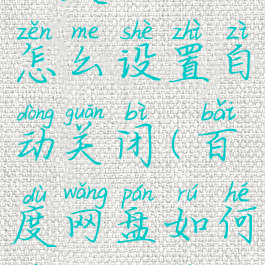 zěn me shè zhì zì
怎么设置自
dòng guān bì bǎi
动关闭(百
dù wǎng pán rú hé
度网盘如何